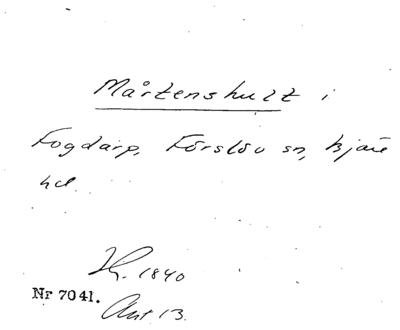 Mårtenshult i
Fogdarp, Förslöv sn, Bjäre
hd.
Hs. 1840
Nr 7041.
Avt 13.